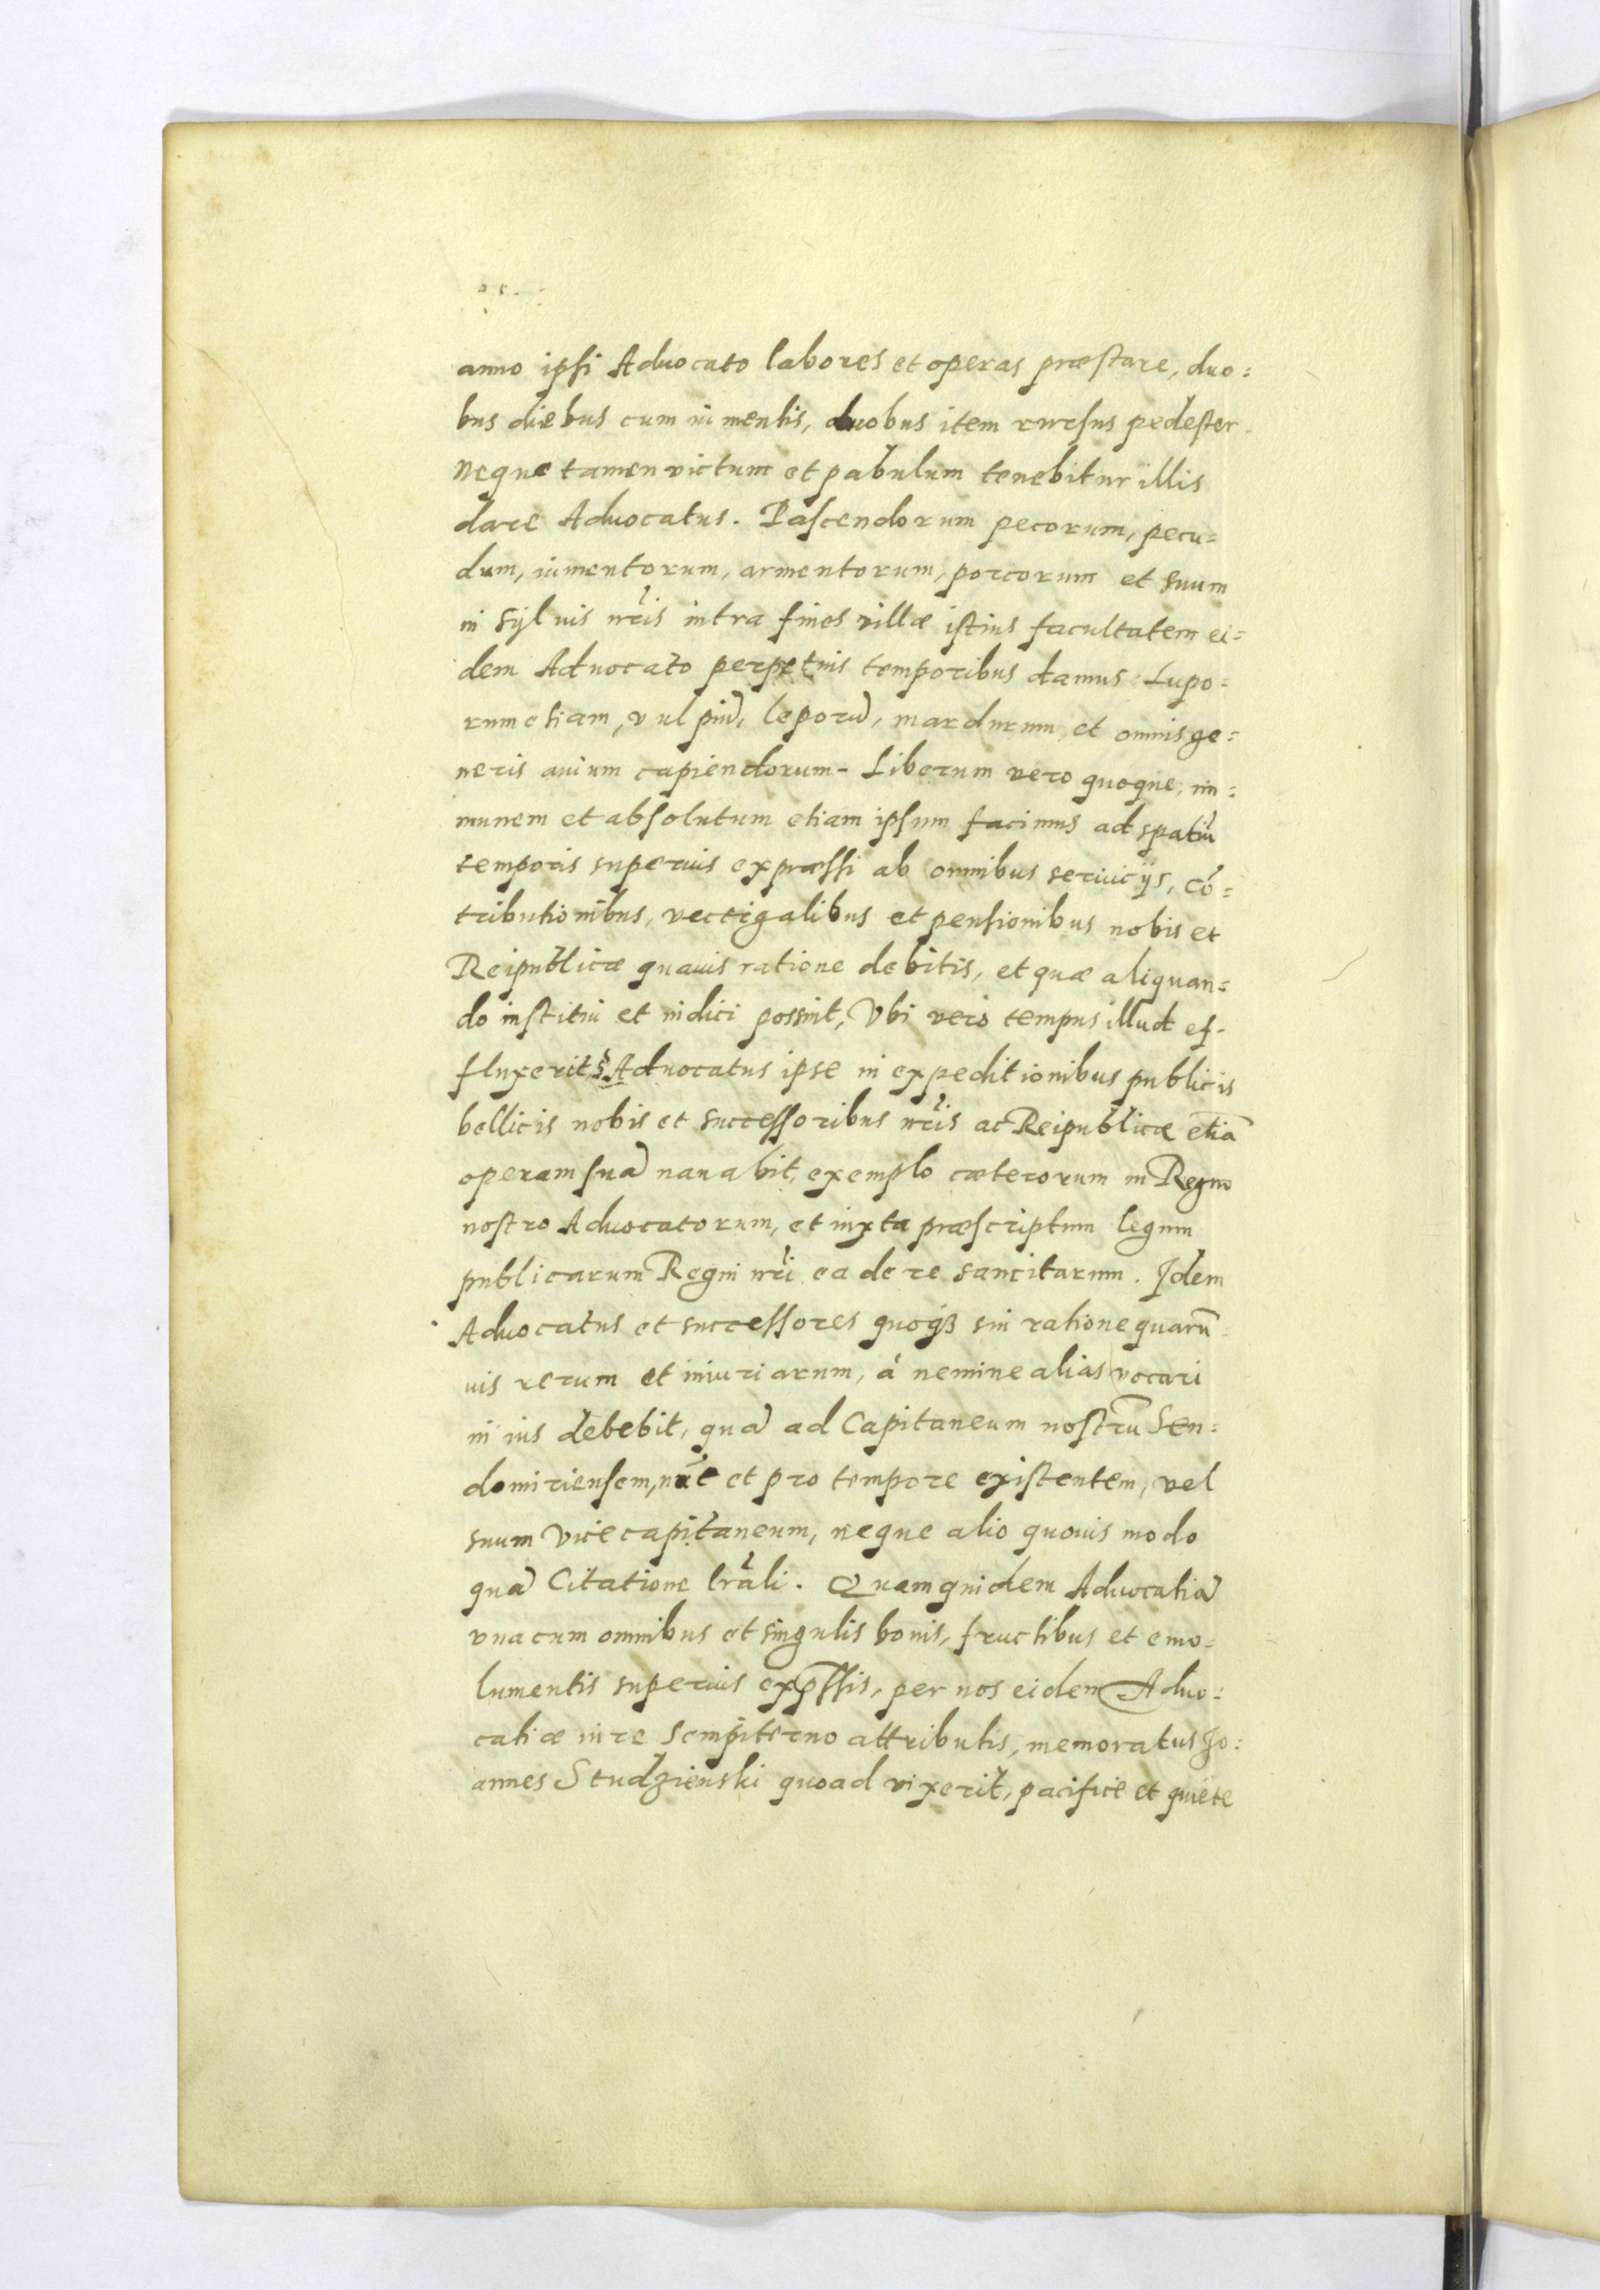 anno ipsi Advocato labores et operas præstare, duo=
bus diebus cum iumentis, duobus item rursus pedester.
Neque tamen victum et pabulum tenebitur illis
dare Advocatus. Pascendorum pecorum, pecu=
dum, iumentorum, armentorum, porcorum et suum
in sylvis nr̃is intra fines villæ istius facultatem ei=
dem Advocato perpetuis temporibus damus: Lupo=
rum etiam, vulpiũ, leporũ, mardurum, et omnis ge=
neris avium capiendorum- Liberum vero quoque, im=
munem et absolutum etiam ipsum facimus ad spatiũ
temporis superius expræssi ab omnibus serviciijs, cõ=
tributionibus, vectigalibus et pensionibus nobis et
Reipublicæ quavis ratione debitis, et quæ aliquan=
do institui et indici possint, Vbi vero tempus illud ef-
fluxerit, Advocatus ipse in expeditionibus publicis
bellicis nobis et successoribus nr̃is ac Reipublicæ etiã
operam suã navabit, exemplo cæterorum in Regno
nostro Advocatorum, et iuxta præscriptum legum
publicarum Regni nr̃i ea de re sancitarum. Idem
Advocatus et successores quoqꝫ sui ratione quarũ=
vis rerum et iniuriarum, à nemine alias vocari
in ius debebit, quã ad Capitaneum nostrũ Sen=
domiriensem, nũc et pro tempore existentem, vel
suum Vicecapitaneum, neque alio quovis modo
quã Citatione lr̃ali. Quamquidem Advocatiã
vna cum omnibus et singulis bonis, fructibus et emo=
lumentis superius exp̃ssis, per nos eidem Advo=
catiæ iure sempiterno attributis, memoratus Jo=
annes Studzienski quoad vixerit, pacifice et quiete